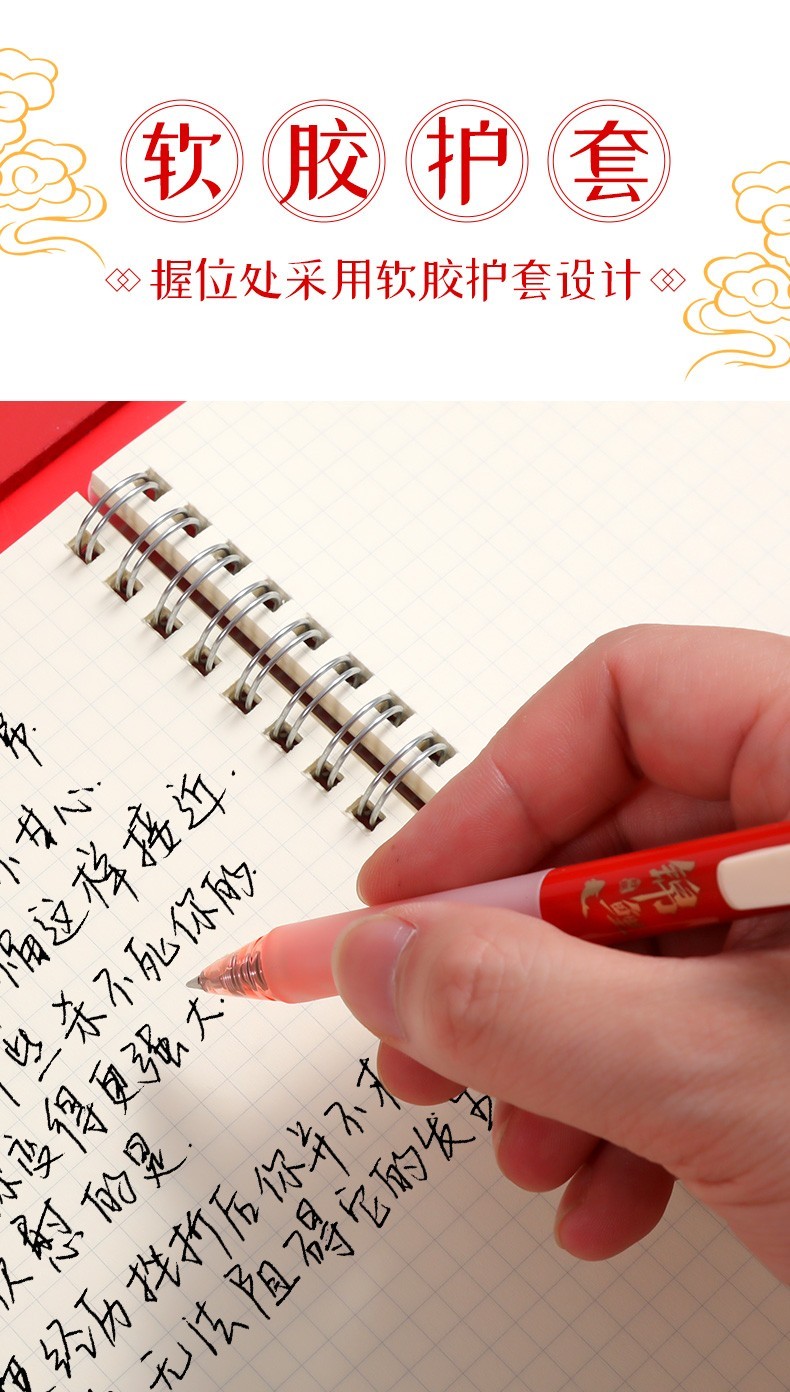 软胶护套
握位处采用软胶护套设计
锦鲤
不甘心.
这样接近.
些杀不死你的
变得更强大.
慰的是.
经历挫折后你并不
无法阻碍它的发生